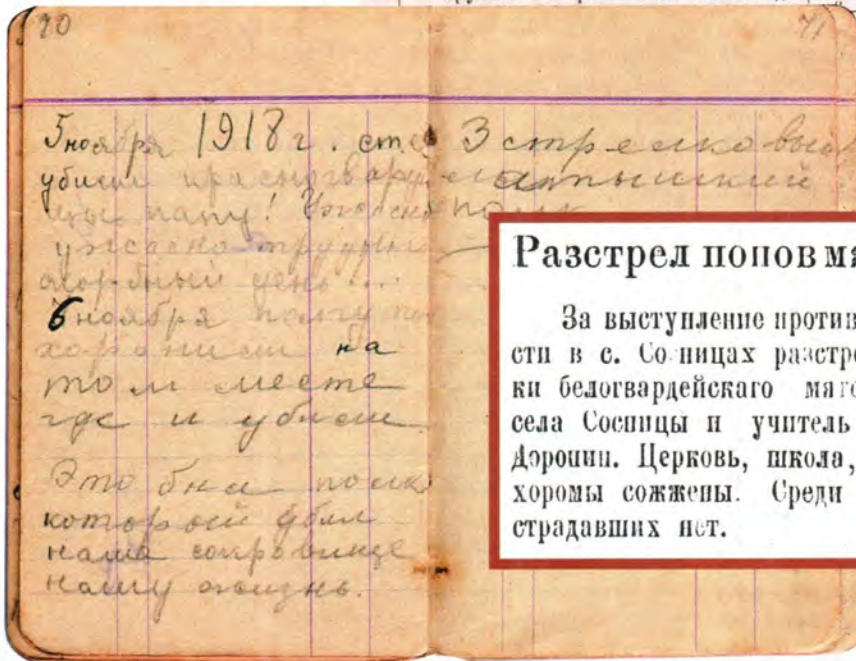 70
71
5 ноября 1918 г. ст.с
убили красногвардей
цы папу! Ужасный
ужасно трудный
скорбный день...
6 ноября папу по
хоронили на
том месте
где и убили
Это был полк
который убил
наше сокровище
нашу жизнь.
3 стрелковый
латышский
полк
Разстрел попов
За выступление против
сти в с. разстре
ки белогвардейскаго
села Сосницы и учитель
Доронин. Церковь, школа,
хоромы сожжены. Среди
страдавших нет.